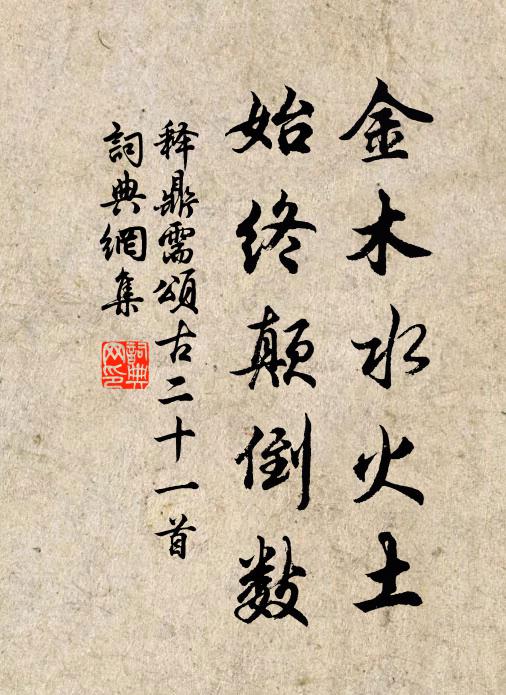 金木水火土
始终颠倒数
释鼎需颂古二十一首
詞典網集
詞典网印